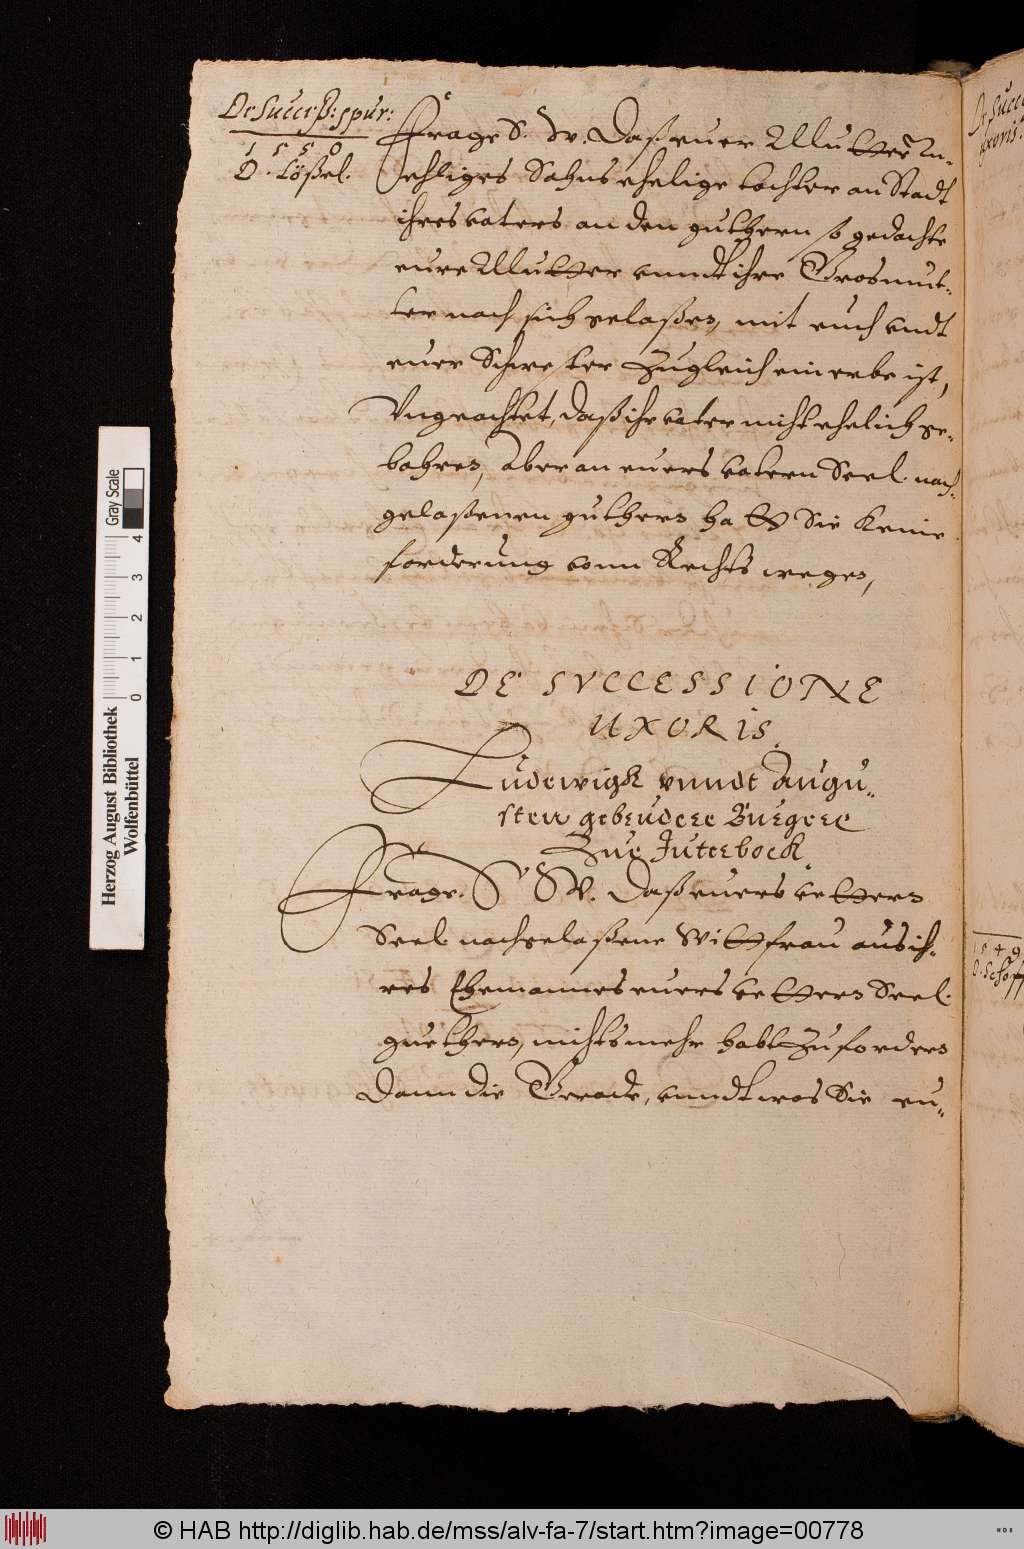 De Succeß: spur:
1550
D. Lößel.
Frage S. W. Daß euer Mutter Un-
ehliges Sohns ehelige tochter an Stadt
ihres vaters an den guthern so gedachte
eure Mutter vnndt ihre Grosmut-
ter nach sich gelaßen, mit euch vndt
euer Schwester Zugleich ein erbe ist,
Vngeachtet, daß ihr vater nicht ehelich ge-
bohren, Aber an euers vatern Seel. nach-
gelaßenen guthern hatt Sie keine
forderung vonn Rechts wegen,
DE SVCCESSIONE
UXORIS.
Ludewigk vnndt Augu-
sten gebrudere Burgere
Zue Jutterbock.
Frage. S. W. Daß euers vettern
Seel. nachgelaßene Wittfrau aus ih-
res Ehemannes euers vettern Seel.
guethern, nichts mehr habt Zu fordern
Dann die Gerade, vnndt was Sie eu-
De Succ
uxoris.
1549
D. Schöff
Herzog August Bibliothek
Wolfenbüttel
Gray Scale
0 1 2 3 4
© HAB http://diglib.hab.de/mss/alv-fa-7/start.htm?image=00778